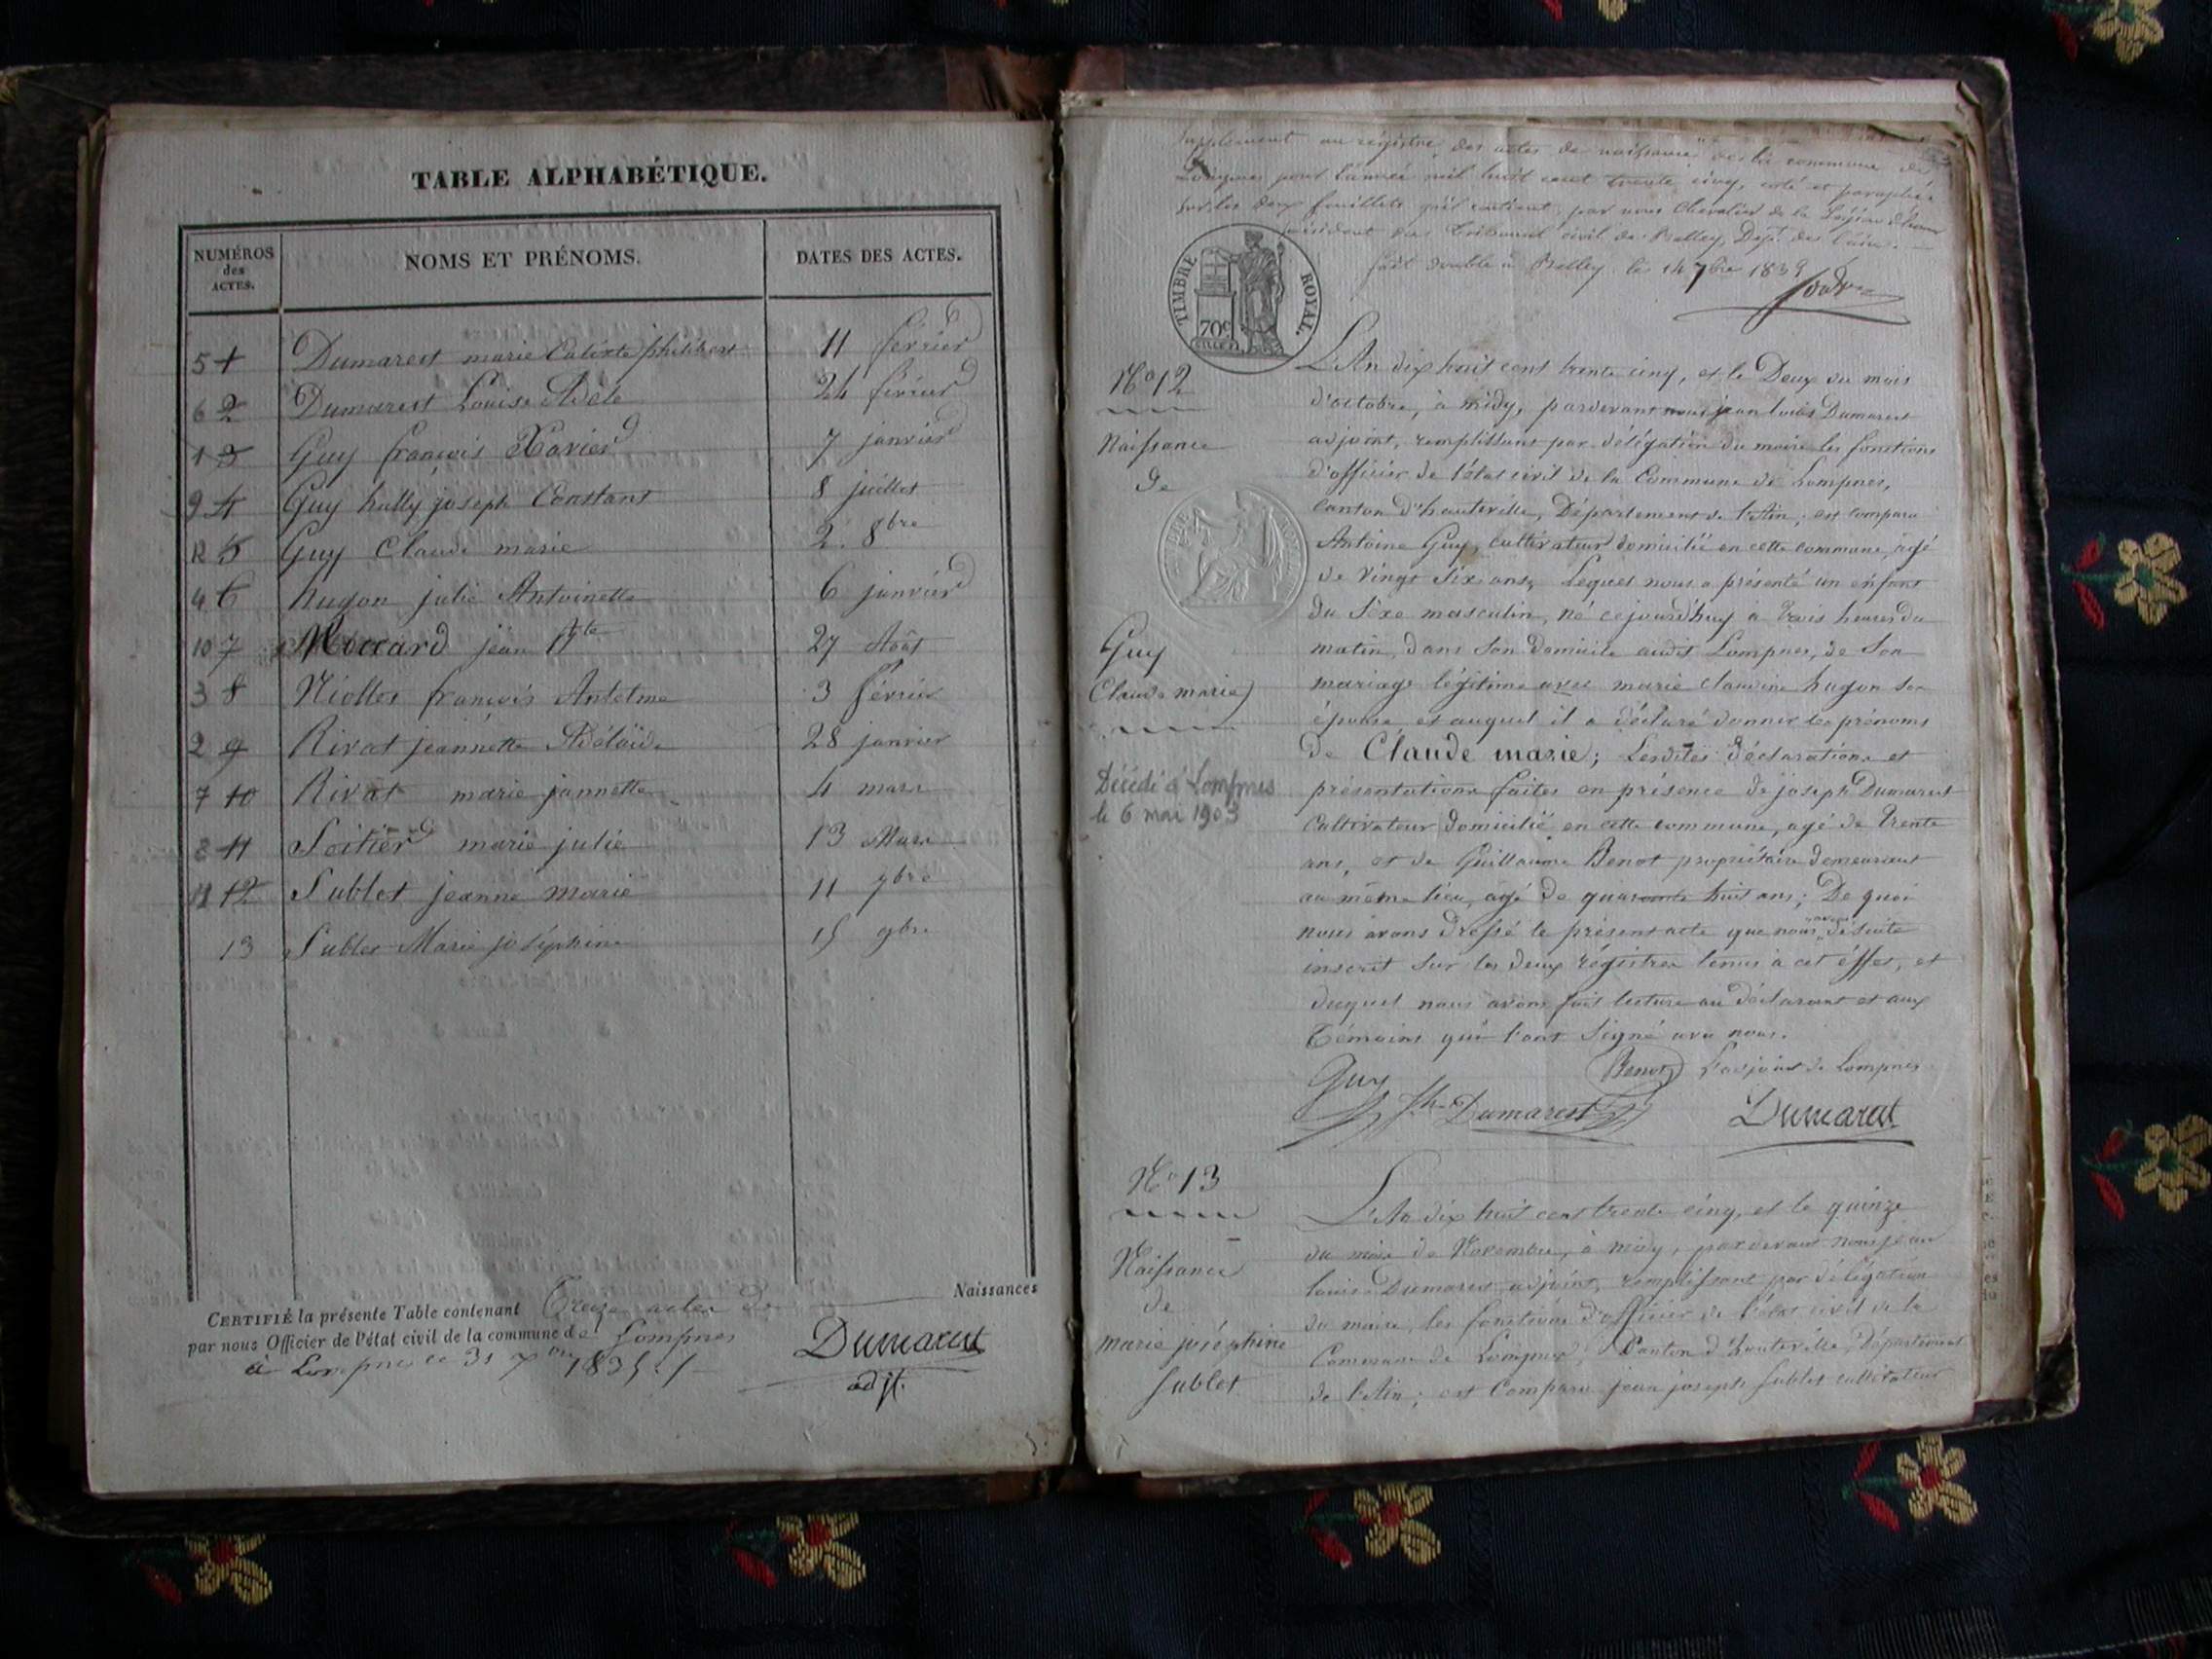 TABLE ALPHABÉTIQUE.
NUMÉROS des ACTES. NOMS ET PRÉNOMS. DATES DES ACTES.
5 1 Dumarest marie Calixte philibert 11 février
6 2 Dumarest Louise Adèle 24 février
1 3 Guy françois Xavier 7 janvier
9 4 Guy joseph Constant 8 juillet
12 5 Guy Claude marie 2. 8bre
4 6 hugon julie Antoinette 6 janvier
10 7 jean Bte 27 Août
3 8 françois Antelme 3 février
2 9 Rivat jeannette Adélaïde 28 janvier
7 10 Rivat marie jannette 4 mars
8 11 marie julie 13 Mars
11 12 Sublet jeanne marie 11 7bre
13 Sublet Marie joséphine 15 9bre
CERTIFIÉ la présente Table contenant Treize actes de Naissances
par nous Officier de l'état civil de la commune de Lompnes
à Lompnes le 31 1835
Dumarest
adjt.
Supplément au régistre des actes de naissance de la commune de
Lompnes pour l'année mil huit cent trente cinq, coté et paraphé
sur les deux feuillets qu'il contient, par nous Chevalier de la Légion d'honneur
président du Tribunal civil de Belley, Dépt. de l'ain.
fait double à Belley le 14 7bre 1835
TIMBRE ROYAL.
70c
No 12
Naissance
de
Guy
Claude marie
Décédé à Lompnes
le 6 mai 1903
L'An dix huit cent trente cinq, et le Deux du mois
d'octobre, à midy, pardevant nous jean louis Dumarest
adjoint, remplissant par délégation du maire les fonctions
d'officier de l'état civil de la Commune de Lompnes,
canton d'hauteville, Département de l'Ain; est comparu
Antoine Guy, cultivateur domicilié en cette commune, âgé
de vingt six ans, Lequel nous a présenté un enfant
du sèxe masculin, né cejourd'huy à trois heures du
matin, dans son domicile audit Lompnes, de Son
mariage légitime avec marie claudine hugon son
épouse et auquel il a déclaré donner les prénoms
de Claude marie; Lesdites déclaration et
présentation faites en présence de joseph Dumarest
cultivateur domicilié en cette commune, agé de trente
ans, et de Guillaume Benot propriétaire demeurant
au même lieu, agé de quarante huit ans; De quoi
nous avons dressé le présent acte que nous avons de suite
inscrit sur les deux régistres tenus à cet éffet, et
duquel nous avons fait lecture au déclarant et aux
témoins qui l'ont signé avec nous.
Guy Benot L'adjoint de Lompnes
Jh Dumarest Dumarest
No 13
Naissance
de
marie joséphine
Sublet
L'An dix huit cent trente cinq, et le quinze
du mois de Novembre, à midy, pardevant nous jean
louis Dumarest adjoint, remplissant par délégation
du maire, les fonctions d'officier de l'état civil de la
Commune de Lompnes, Canton d'hauteville, Département
de l'Ain; est Comparu jean joseph Sublet cultivateur